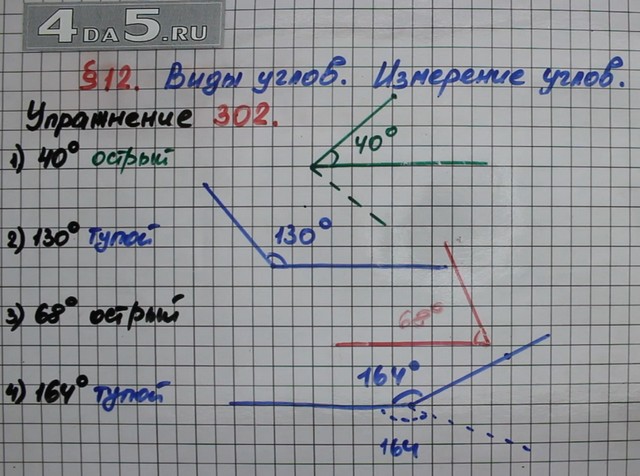 4DA5.RU
§12. Виды углов. Измерение углов.
Упражнение 302.
1) 40° острый
40°
2) 130° тупой
130°
3) 68° острый
68°
4) 164° тупой
164°
164